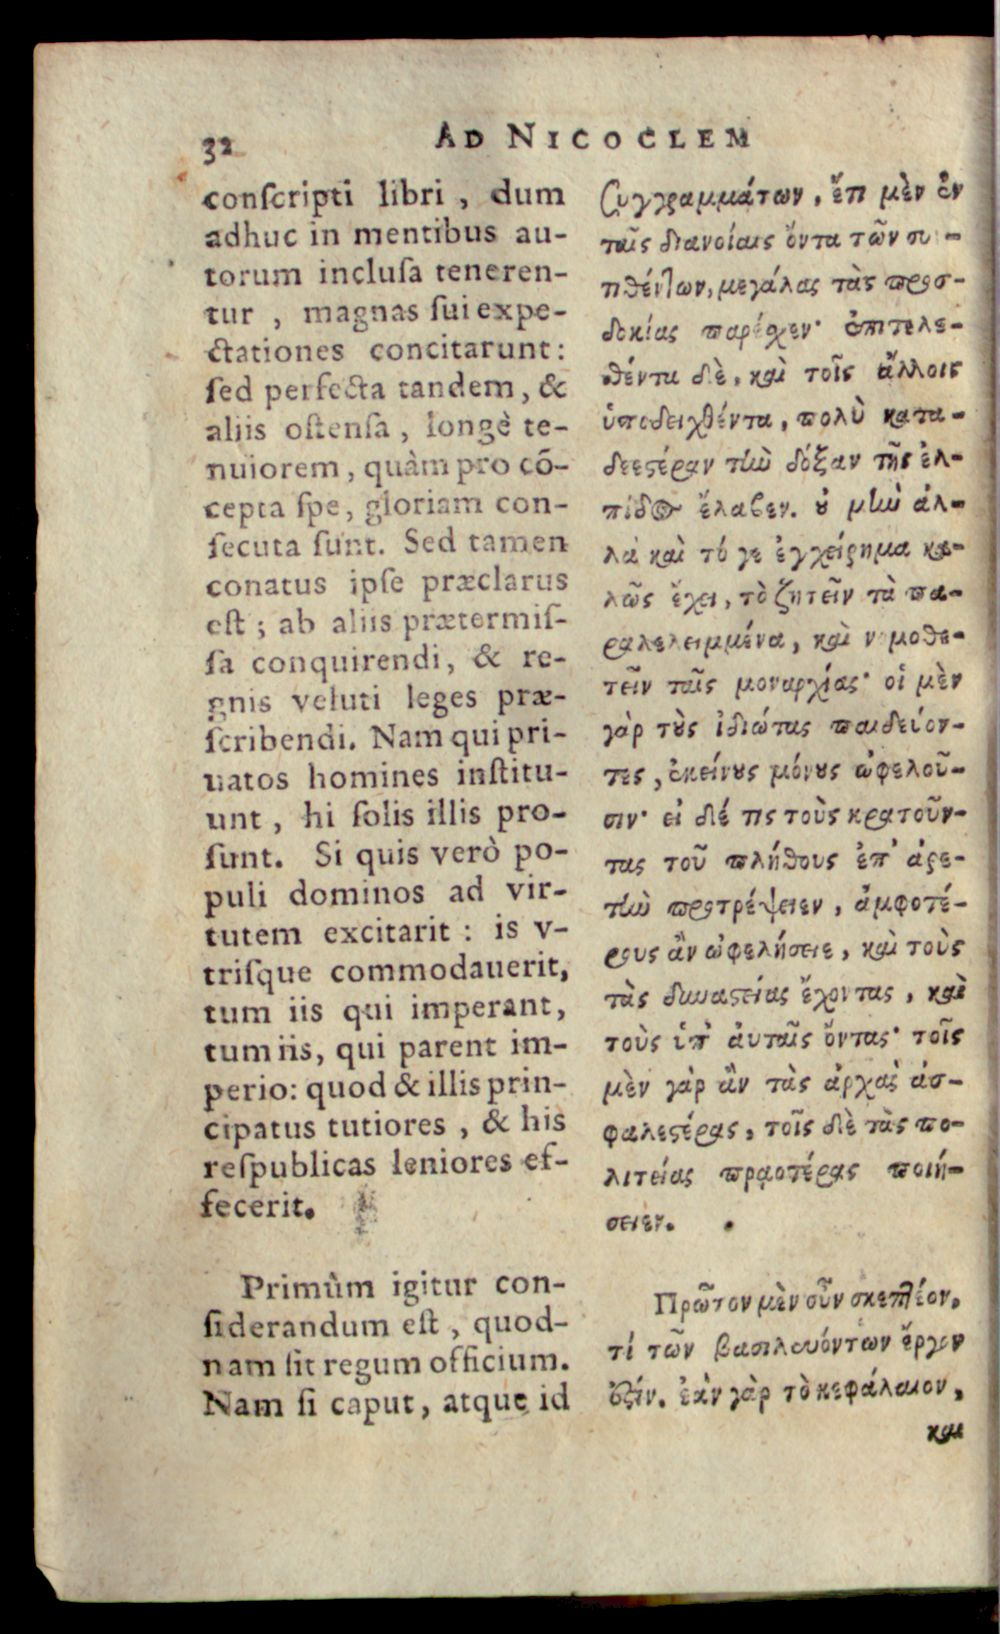 32 AD NICOCLEM
conſcripti libri, dum
adhuc in mentibus au-
torum incluſa teneren-
tur, magnas ſui expe-
ctationes concitarunt:
ſed perfecta tandem, &
aliis oſtenſa, longè te-
nuiorem, quàm pro cō-
cepta ſpe, gloriam con-
ſecuta ſunt. Sed tamen
conatus ipſe præclarus
eſt; ab aliis prætermiſ-
ſa conquirendi, & re-
gnis veluti leges præ-
ſcribendi. Nam qui pri-
uatos homines inſtitu-
unt, hi ſolis illis pro-
ſunt. Si quis verò po-
puli dominos ad vir-
tutem excitarit: is v-
triſque commodauerit,
tum iis qui imperant,
tum iis, qui parent im-
perio: quod & illis prin-
cipatus tutiores, & his
reſpublicas leniores ef-
fecerit.
Primùm igitur con-
ſiderandum eſt, quod-
nam ſit regum officium.
Nam ſi caput, atque id
συγγραμμάτων, ἔτι μὲν ἐν
ταῖς διανοίαις ὄντα τῶν συ-
τιθέντων, μεγάλας τὰς προσ-
δοκίας παρέσχεν· ἐπιτελε-
σθέντα δὲ, καὶ τοῖς ἄλλοις
ὑποδειχθέντα, πολὺ κατα-
δεεστέραν τὴν δόξαν τῆς ἐλ-
πίδος ἔλαβεν. οὐ μὴν ἀλ-
λὰ καὶ τό γε ἐγχείρημα κα-
λῶς ἔχει, τὸ ζητεῖν τὰ πα-
ραλελειμμένα, καὶ νομοθε-
τεῖν ταῖς μοναρχίας· οἱ μὲν
γὰρ τοὺς ἰδιώτας παιδεύον-
τες, ἐκείνους μόνους ὠφελοῦ-
σιν· εἰ δέ τις τοὺς κρατοῦν-
τας τοῦ πλήθους ἐπ' ἀρε-
τὴν προτρέψειεν, ἀμφοτέ-
ρους ἂν ὠφελήσειε, καὶ τοὺς
τὰς δυναστείας ἔχοντας, καὶ
τοὺς ὑπ' αὐταῖς ὄντας· τοῖς
μὲν γὰρ ἂν τὰς ἀρχὰς ἀσ-
φαλεστέρας, τοῖς δὲ τὰς πο-
λιτείας πραοτέρας ποιή-
σειεν.
Πρῶτον μὲν οὖν σκεπτέον,
τί τῶν βασιλευόντων ἔργον
ἐστίν. ἐὰν γὰρ τὸ κεφάλαιον,
καὶ